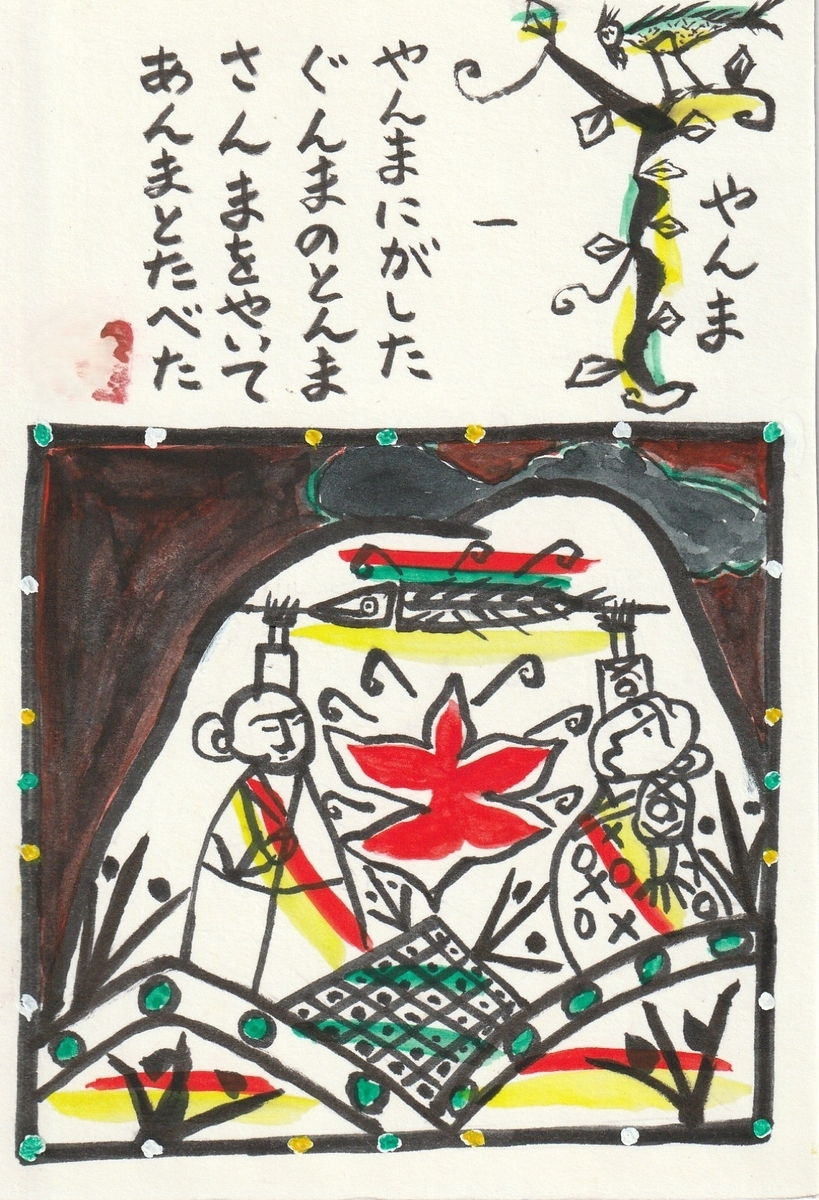 やんま
一
やんまにがした
ぐんまのとんま
さんまをやいて
あんまとたべた